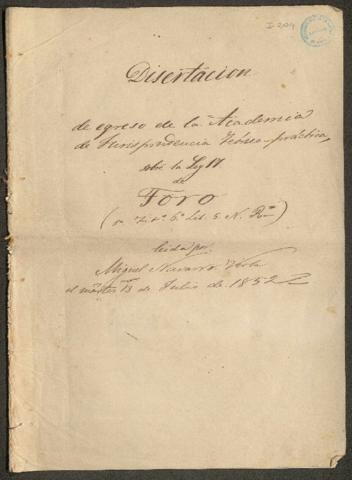 I 204
Disertacion
de egreso de la Academia
de Jurisprudencia Teórico-práctica,
sobre la Ley
de
Toro
leida por
Miguel Navarro Viola
el martes 13 de Julio de 1852